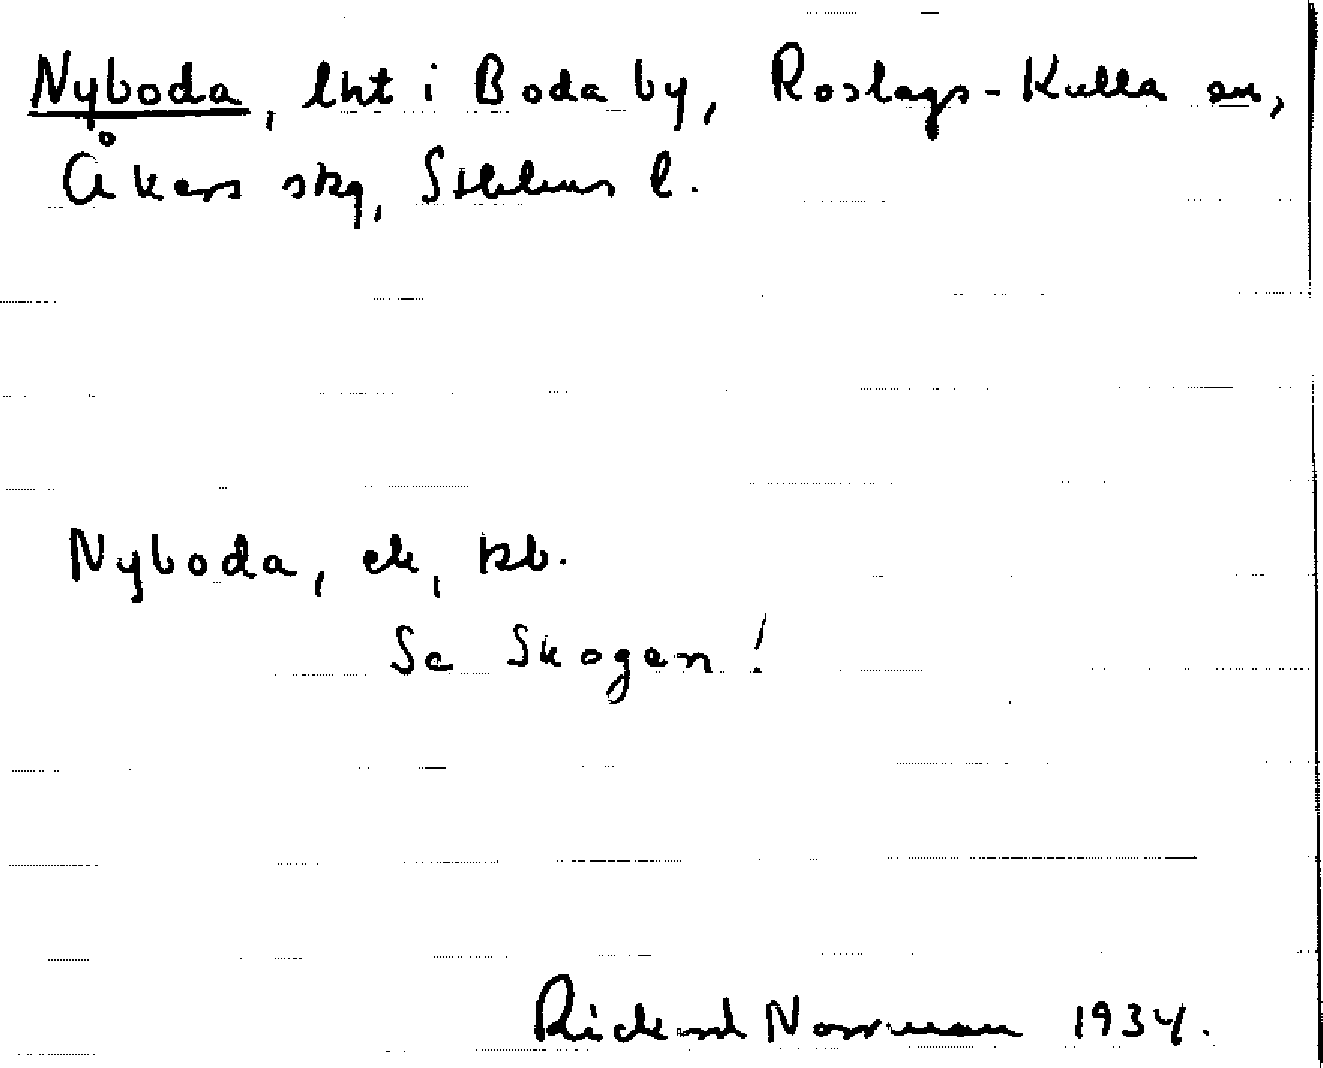 Nyboda, lht i Boda by, Roslags-Kulla sn,
Åkers skg, Sthlms l.
Nyboda, ek, kb.
Se Skogen!
Rickard Norrman 1934.